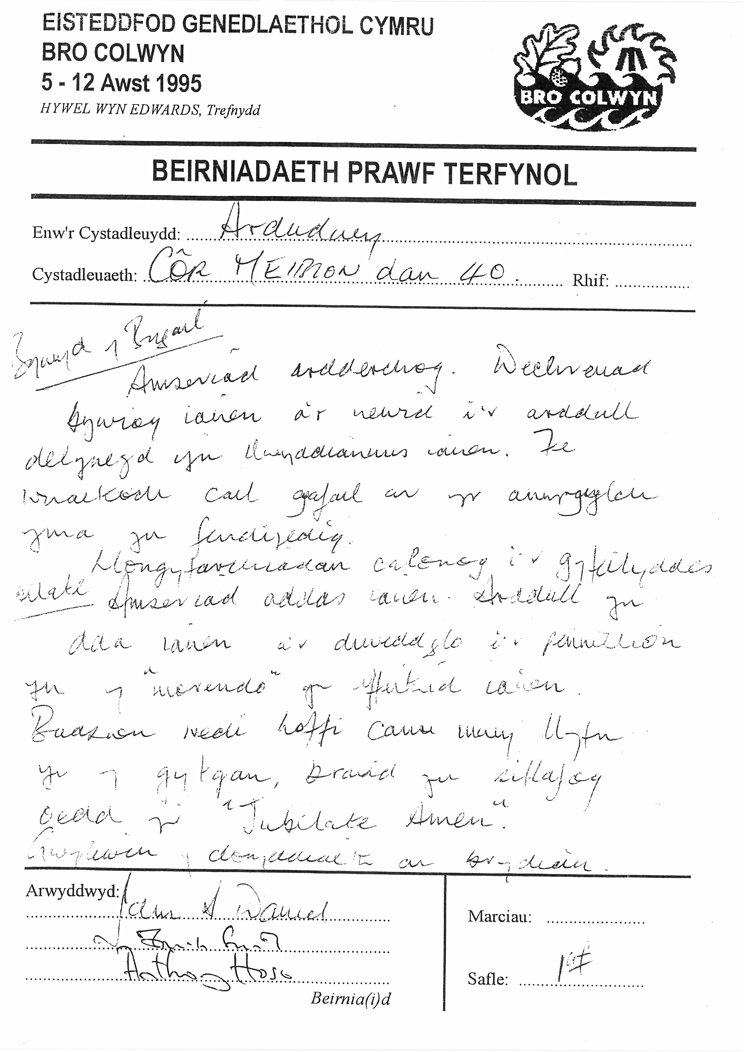 EISTEDDFOD GENEDLAETHOL CYMRU
BRO COLWYN
5 - 12 Awst 1995
HYWEL WYN EDWARDS, Trefnydd
BRO COLWYN
BEIRNIADAETH PRAWF TERFYNOL
Enw'r Cystadleuydd: Ardudwy
Cystadleuaeth: CÔR MEIBION dan 40. Rhif:
Bywyd y Bugail
Amseriad ardderchog. Dechreuad
hynciog iawn a'r newid i'r arddull
delynegol yn llwyddiannus iawn. Fe
wnaethoch cael gafael ar yr awyrgylch
yma yn fendigedig.
Llongyfarchiadau calonog i'r gyfeilyddes
Amseriad addas iawn. Arddull yn
dda iawn a'r diweddglo i'r penillion
yn y "morendo" yn effeithiol iawn.
Buaswn wedi hoffi canu mwy llyfn
yn y gytgan, braidd yn sillafog
oedd y "Jubilate Amen".
Gwyliwch y donyddiaeth ar brydiau.
Arwyddwyd:
Marciau:
Safle: 1af
Beirnia(i)d